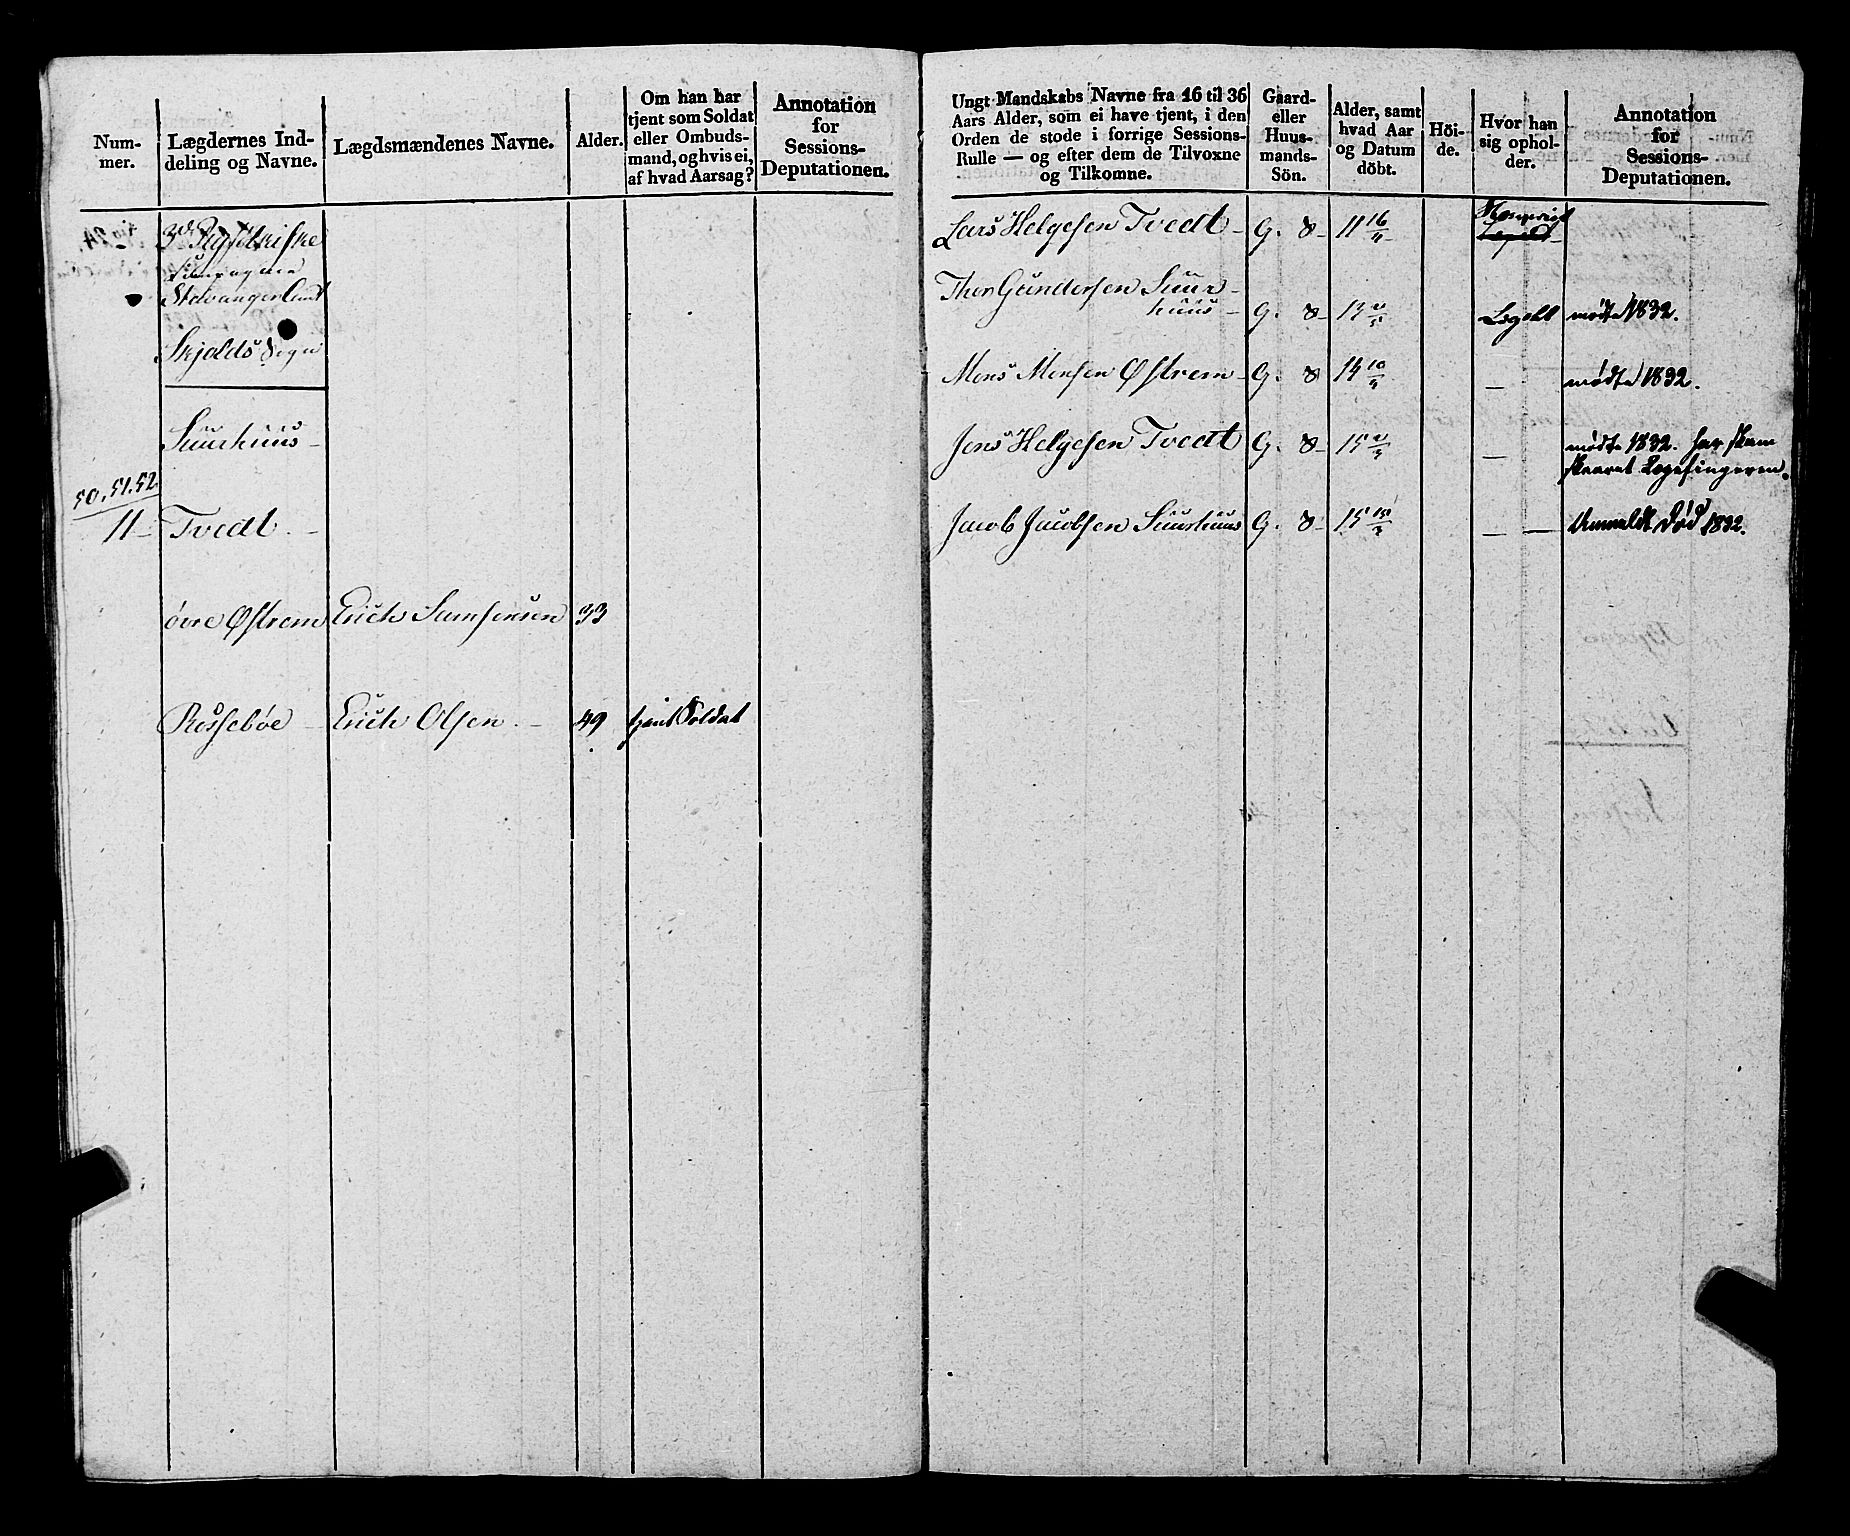 Num-
mer.
Lægdernes Ind-
deling og Navne.
Lægdsmændenes Navne.
Alder.
Om han har
tjent som Soldat
eller Ombuds-
mand, og hvis ei,
af hvad Aarsag?
Annotation
for
Sessions-
Deputationen.
Stavanger Amt
Skjolds Sogn
Suurhuus -
50, 51. 52
11 - Tvedt. -
övre Østrem Erich Samsonsen 33
Rossebøe - Erich Olsen. - 49 tjent Soldat
Ungt Mandskabs Navne fra 16 til 36
Aars Alder, som ei have tjent, i den
Orden de stode i forrige Sessions-
Rulle — og efter dem de Tilvoxne
og Tilkomne.
Gaard-
eller
Huus-
mands-
Sön.
Alder, samt
hvad Aar
og Datum
döbt.
Höi-
de.
Hvor han
sig ophol-
der.
Annotation
for
Sessions-
Deputationen.
Lars Helgesen Tvedt - G. 8 - 11 16/11
Thor Gundersen Suur-
huus - G. 8 - 13 Legdet mødte 1832.
Mons Monsen Østrem - G. 8 14 — mødte 1832.
Jens Helgesen Tvedt G. 8 - 15 — mødte 1832. har skam
skaaret Pegefingeren.
Jacob Jacobsen Suurhuus G. 8 - 15 — — Anmeldt Død 1832.